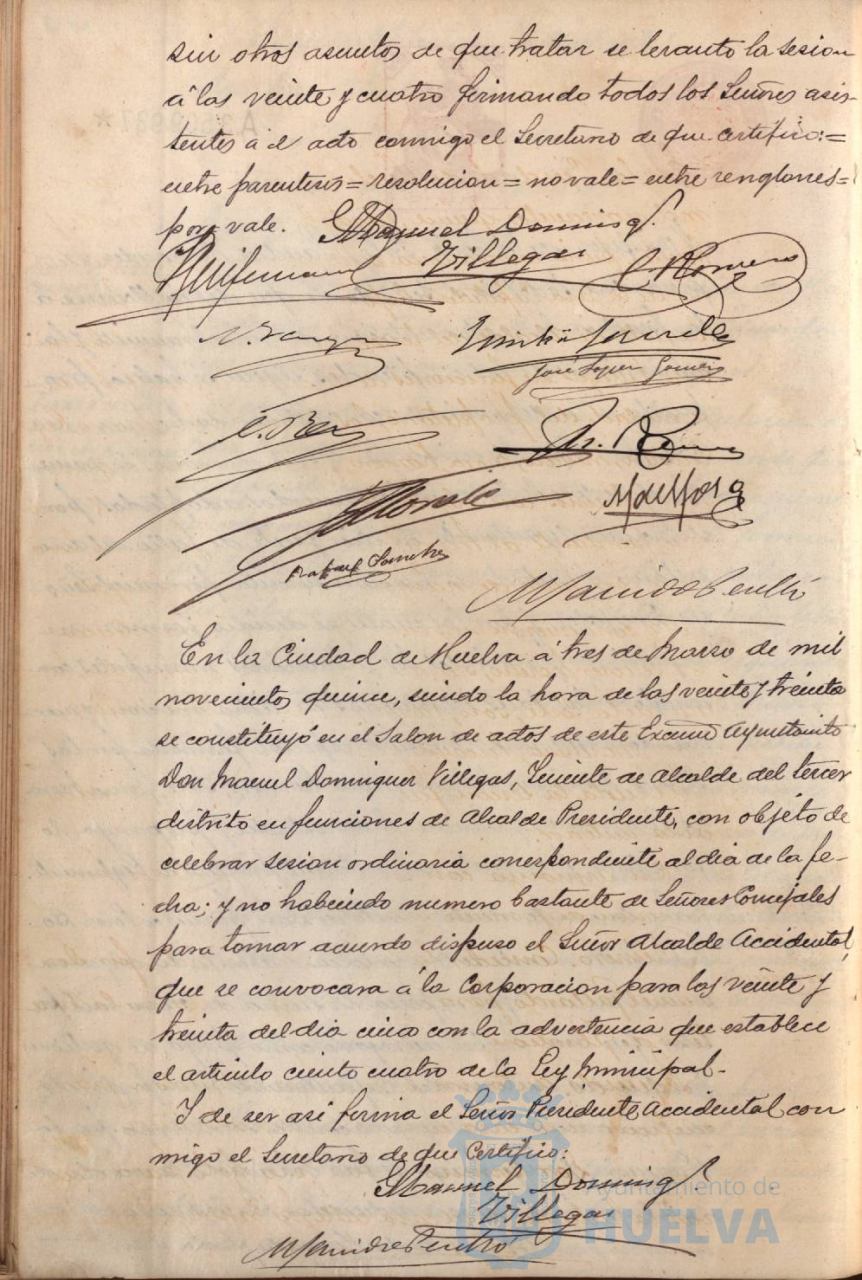 sin otros asuntos de que tratar se levanto la sesion
á las veinte y cuatro firmando todos los Señores asis-
tentes á el acto conmigo el Secretario de que certifico:=
entre parentesis= resolucion= no vale= entre renglones=
por vale.
Manuel Doming.
Villegas
C. Romero
José Lopez Gomez
Rafael Sanchez
En la Ciudad de Huelva á tres de Marzo de mil
novecientos quince, siendo la hora de las veinte y treinta
se constituyó en el Salon de actos de este Excmo Ayuntamito
Don Manuel Dominguez Villegas, Teniente de Alcalde del tercer
distrito en funciones de Alcalde Presidente, con objeto de
celebrar sesion ordinaria correspondiente al dia de la fe-
cha; y no habiendo numero bastante de Señores Concejales
para tomar acuerdo dispuso el Señor Alcalde Accidental,
que se convocara á la Corporacion para las veinte y
treinta del dia cinco con la advertencia que establece
el articulo ciento cuatro de la Ley Municipal.
Y de ser asi firma el Señor Presidente Accidental con
migo el Secretario de que Certifico:
Manuel Doming.
Villegas
Ayuntamiento de
HUELVA